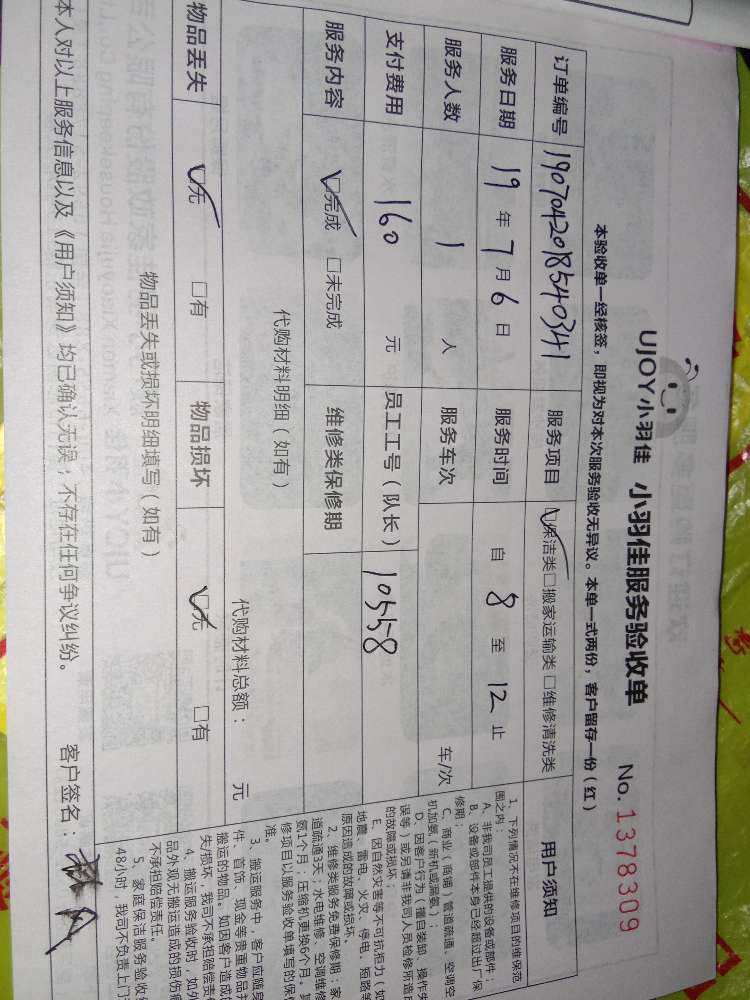 UJOY小羽佳 小羽佳服务验收单 No. 1378309
本验收单一经核签，即视为对本次服务验收无异议。本单一式两份，客户留存一份（红）
订单编号 190704201854034​1 服务项目 ☑保洁类□搬家运输类□维修清洗类
服务日期 19年7月6日 服务时间 自8至12止
服务人数 1人 服务车次 车/次
支付费用 160元 员工工号（队长） 10558
服务内容 ☑完成 □未完成 维修类保修期
代购材料明细（如有）
代购材料总额： 元
物品丢失 ☑无 □有 物品损坏 ☑无 □有
物品丢失或损坏明细填写（如有）
本人对以上服务信息以及《用户须知》均已确认无误，不存在任何争议纠纷。 客户签名：
用户须知
1、下列情况不在维修项目的维保范
围之内：
A、非我司员工提供的设备或部件；
B、设备或部件本身已经超过出厂保
修期；
C、商业（商铺）管道疏通、空调空
机加氨（新机或漏氨）；
D、因客户行为（擅自装卸、操作失
误等）或另请非我司人员检修所造成
的故障或损坏；
E、因自然灾害等不可抗拒力（如
地震、雷电、火灾、停电、短路等
原因造成的故障或损坏
2、维修类服务免费保修期：家
道疏通3天；水电维修、空调维修
氨1个月；压缩机更换6个月。其
修项目以服务验收单填写的保修
准。
3、搬运服务中，客户应随身
件、首饰、现金等贵重物品
搬运的物品。如因客户造成的
失/损坏，我司不承担赔偿责
4、搬运服务验收时，如外
品外观无搬运造成的损伤痕
不承担赔偿责任。
5、家庭保洁服务验收
48小时，我司不负责上门